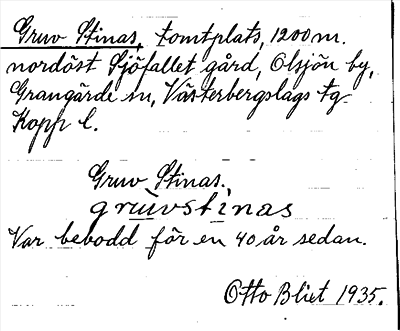 Gruv Stinas, tomtplats, 1200 m.
nordöst Sjöfallet gård, Olsjön by,
Grangärde sn, Västerbergslags tg
Kopp l.
Gruv Stinas.
gruvstinas
Var bebodd för en 40 år sedan.
Otto Blixt 1935.